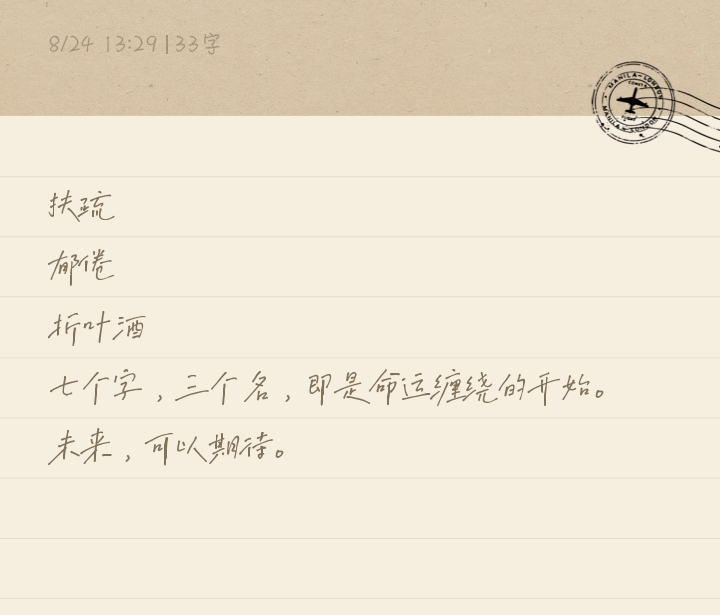 8/24 13:29|33字
MANILA-LONDON
MANILA-LONDON
扶疏
郁倦
折叶酒
七个字，三个名，即是命运缠绕的开始。
未来，可以期待。